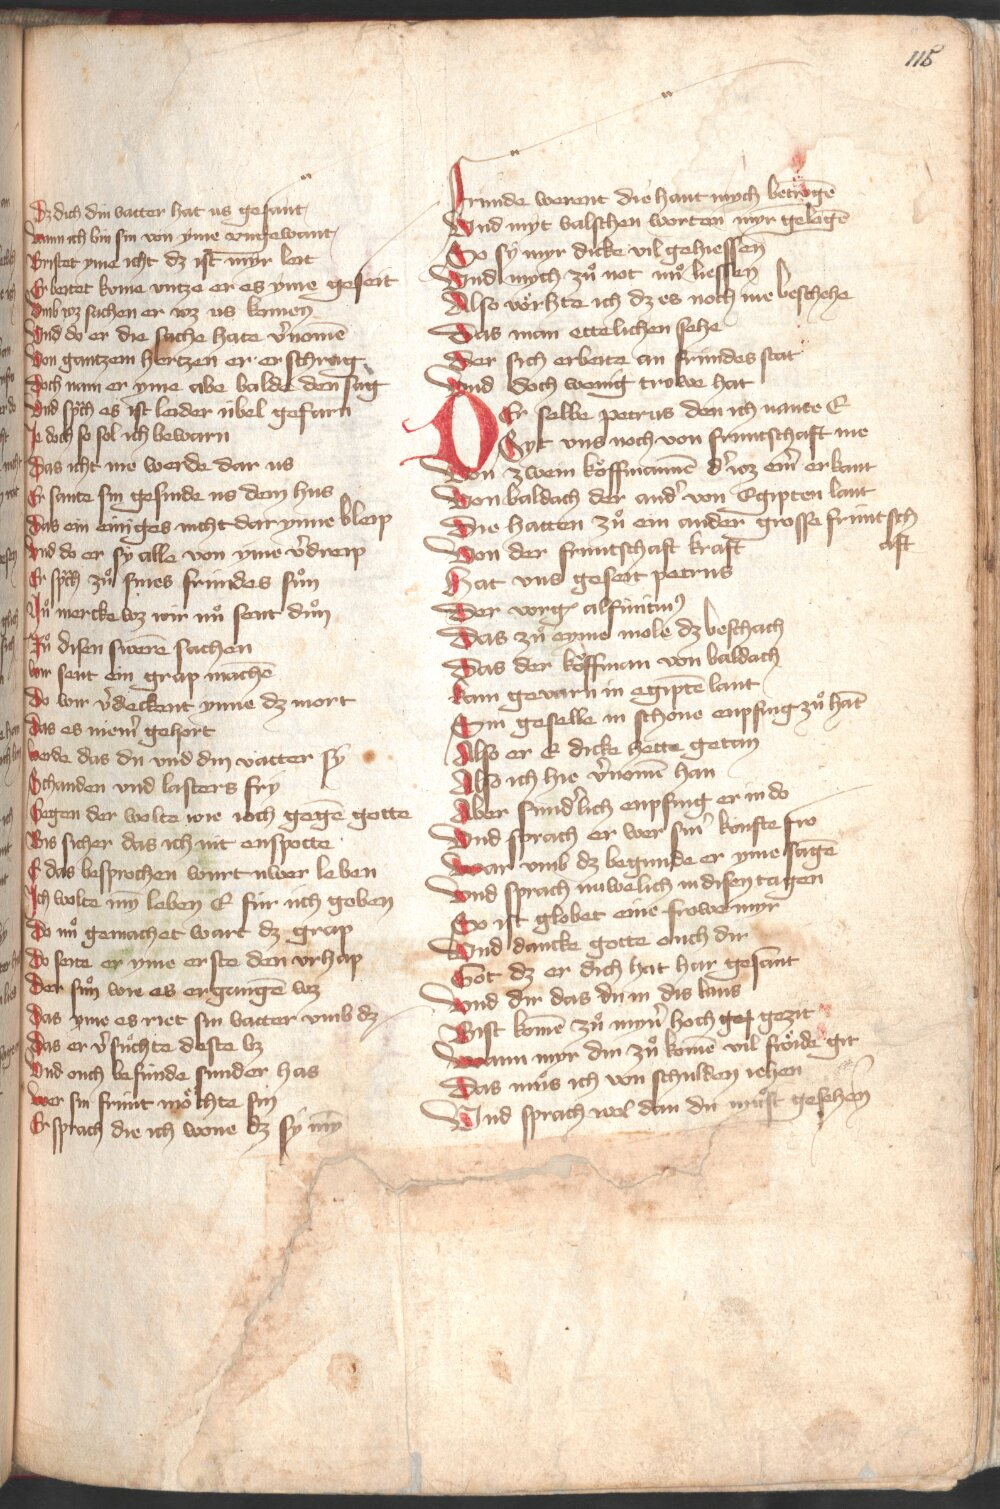 115
Dz dich din vatter hat us gesant
Wann ich bin sin von yme vngewant
Bristet yme icht dz ist myr leit
Er beitet kome vntze er es yme geseit
Vmb wz sachen er wz us komen
Vnd do er die sache hate v̓nomē
Von gantzem hertzen er erschrag
Doch nam er yme abe balde den sag
Vnd sp̄ch es ist leider übel gefarn
Je doch so sol ich bewarn
Das icht me werde dar us
Er sante sin gesinde us dem hus
Das ein einiges nicht dar ynne bleip
Vnd do er sy alle von yme v̓dreip
Er sp̄ch zuͦ sines fründes suͦn
Nuͦ mercke wz wir nuͦ sent duͦn
Zuͦ disen swere sachen
Wir sent ein grap machē
Do wir v̓deckent ynne dz mort
Das es niem̄ gehort
Werde das du vnd din vatter sy
Schanden vnd lasters fry
Gegen der welte wie ioch gegē gotte
Bis sicher das ich nit enspotte
E das besprochen wurt uwer leben
Ich wolte mȳ leben E für üch geben
Do nuͦ gemachet wart dz grap
Do seite er yme erste den vrhap
Der suͦn wie es ergangē wz
Das yme es riet sin vatter vmb dz
Das er v̓suͦchte deste bz
Vnd ouch befünde sunder has
Wer sin frunt moͤchte sin
Er sprach die ich wone dz sy mȳ
Fründe werent die hant mych betrogē
Vnd myt valschen worten myr gelogē
So sy myr dicke vil gehiessen
Vnd mych zuͦ not nuͦ liessen
Also voͤrhte ich dz es noch me beschehe
Das man ettelichen sehe
Der sich erbeite an fründes stat
Vnd doch wenig trowe hat
Der selbe petrus den ich nante E
Syt vns noch von fruntschaft me
Von zwein koͤffmannē d̓ wz ein̓ erkant
Von baldach der and̓ von Egipten lant
Die hatten zuͦ ein ander grosse früntsch
aft
Von der fruntschaft kraft
Hat vns geseit petrus
Der vorg alfunsus
Das zuͦ eyme mole dz beschach
Das der koͤffman von baldach
Kam gevarn in egiptē lant
Sin geselle in schone enpfing zuͦ hāt
Also er E dicke hette getan
Also ich hie v̓nomē han
Aber sund̓lich enpfing er in do
Vnd sprach er wer sin̓ kunfte fro
War vmb dz begunde er yme sagē
Vnd sprach nuwelich in disen tagen
So ist globet eine frowe myr
Vnd dancke gotte ouch dir
Got dz er dich hat har gesant
Vnd dir das du in dis lans
Bist komē zuͦ myn̓ hoch gezit
Wann myr din zuͦ komē vil froͤide git
Das muͦs ich von schulden iehen
Vnd sprach wol dan du muͦst gesehen